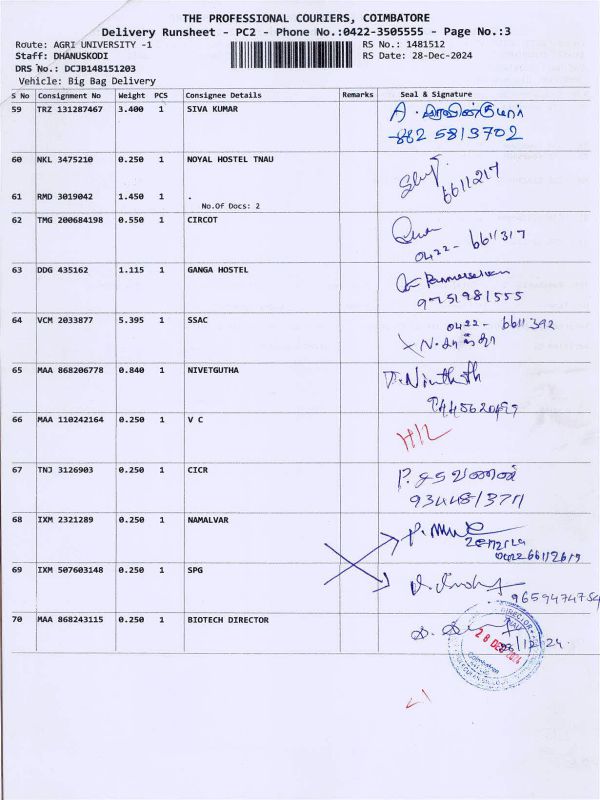 THE PROFESSIONAL COURIERS, COIMBATORE
Delivery Runsheet - PC2 - Phone No.:0422-3505555 - Page No.:3
Route: AGRI UNIVERSITY -1 RS No.: 1481512
Staff: DHANUSKODI RS Date: 28-Dec-2024
DRS No.: DCJB148151203
Vehicle: Big Bag Delivery
S No Consignment No Weight PCS Consignee Details Remarks Seal & Signature
59 TRZ 131287467 3.400 1 SIVA KUMAR
60 NKL 3475210 0.250 1 NOYAL HOSTEL TNAU
6611217
61 RMD 3019042 1.450 1 .
No.Of Docs: 2
62 TMG 200684198 0.550 1 CIRCOT
0422- 6611317
63 DDG 435162 1.115 1 GANGA HOSTEL
9751981555
64 VCM 2033877 5.395 1 SSAC 0422- 6611392
65 MAA 868206778 0.840 1 NIVETGUTHA
66 MAA 110242164 0.250 1 V C
67 TNJ 3126903 0.250 1 CICR P. சரவணன்
68 IXM 2321289 0.250 1 NAMALVAR
69 IXM 507603148 0.250 1 SPG
9659474754
70 MAA 868243115 0.250 1 BIOTECH DIRECTOR
DIRECTOR
28 DEC 2024
Coimbatore